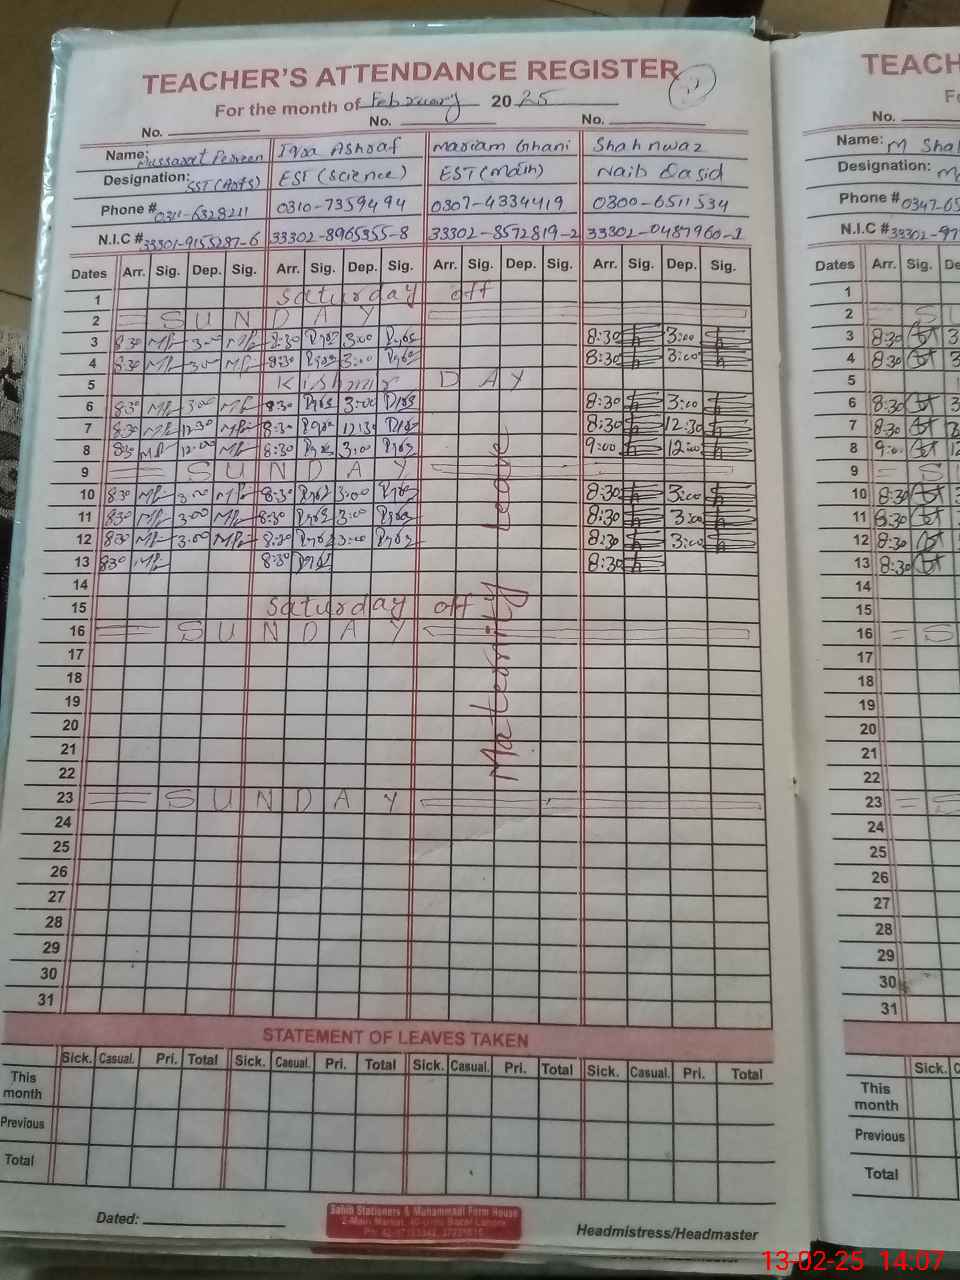 TEACHER'S ATTENDANCE REGISTER
For the month of February 2025
No. No. No.
Name: Mussarat Perveen Iqra Ashraf Mariam Ghani Shahnwaz
Designation: SST(Arts) EST(Science) EST(Math) Naib Qasid
Phone # 0311-6328211 0310-7359494 0307-4334419 0300-6511534
N.I.C # 33301-9155287-6 33302-8965355-8 33302-8572819-2 33302-0487960-1
Dates Arr. Sig. Dep. Sig. Arr. Sig. Dep. Sig. Arr. Sig. Dep. Sig. Arr. Sig. Dep. Sig.
1 Saturday off
2 SUNDAY
3 8:30 3:00 8:30 3:00 8:30 3:00
4 8:30 3:00 8:30 3:00 8:30 3:00
5 Kishmir DAY
6 8:30 3:00 8:30 3:00 8:30 3:00
7 8:30 12:30 8:30 12:30 8:30 12:30
8 8:30 12:00 8:30 3:00 9:00 12:00
9 SUNDAY
10 8:30 3:00 8:30 3:00 8:30 3:00
11 8:30 3:00 8:30 3:00 8:30 3:00
12 8:30 3:00 8:30 3:00 8:30 3:00
13 8:30 8:30 8:30
14
15 Saturday off
16 SUNDAY
17
18
19
20
21
22
23 SUNDAY
24
25
26
27
28
29
30
31
Mateornity Leave
STATEMENT OF LEAVES TAKEN
Sick. Casual. Pri. Total Sick. Casual. Pri. Total Sick. Casual. Pri. Total Sick. Casual. Pri. Total
This month
Previous
Total
Dated:
Sahib Stationers & Muhammadi Form House
2-Main Market, 40-Urdu Bazar Lahore
Headmistress/Headmaster
TEACH
Name: M Sha
Designation:
Phone # 0347-65
N.I.C # 33302-97
Dates Arr. Sig.
1
2 SU
3 8:30
4 8:30
5
6 8:30
7 8:30
8 9:0
9 S
10 8:30
11 8:30
12 8:30
13 8:30
14
15
16 S
17
18
19
20
21
22
23
24
25
26
27
28
29
30
31
Sick.
This month
Previous
Total
13-02-25 14:07